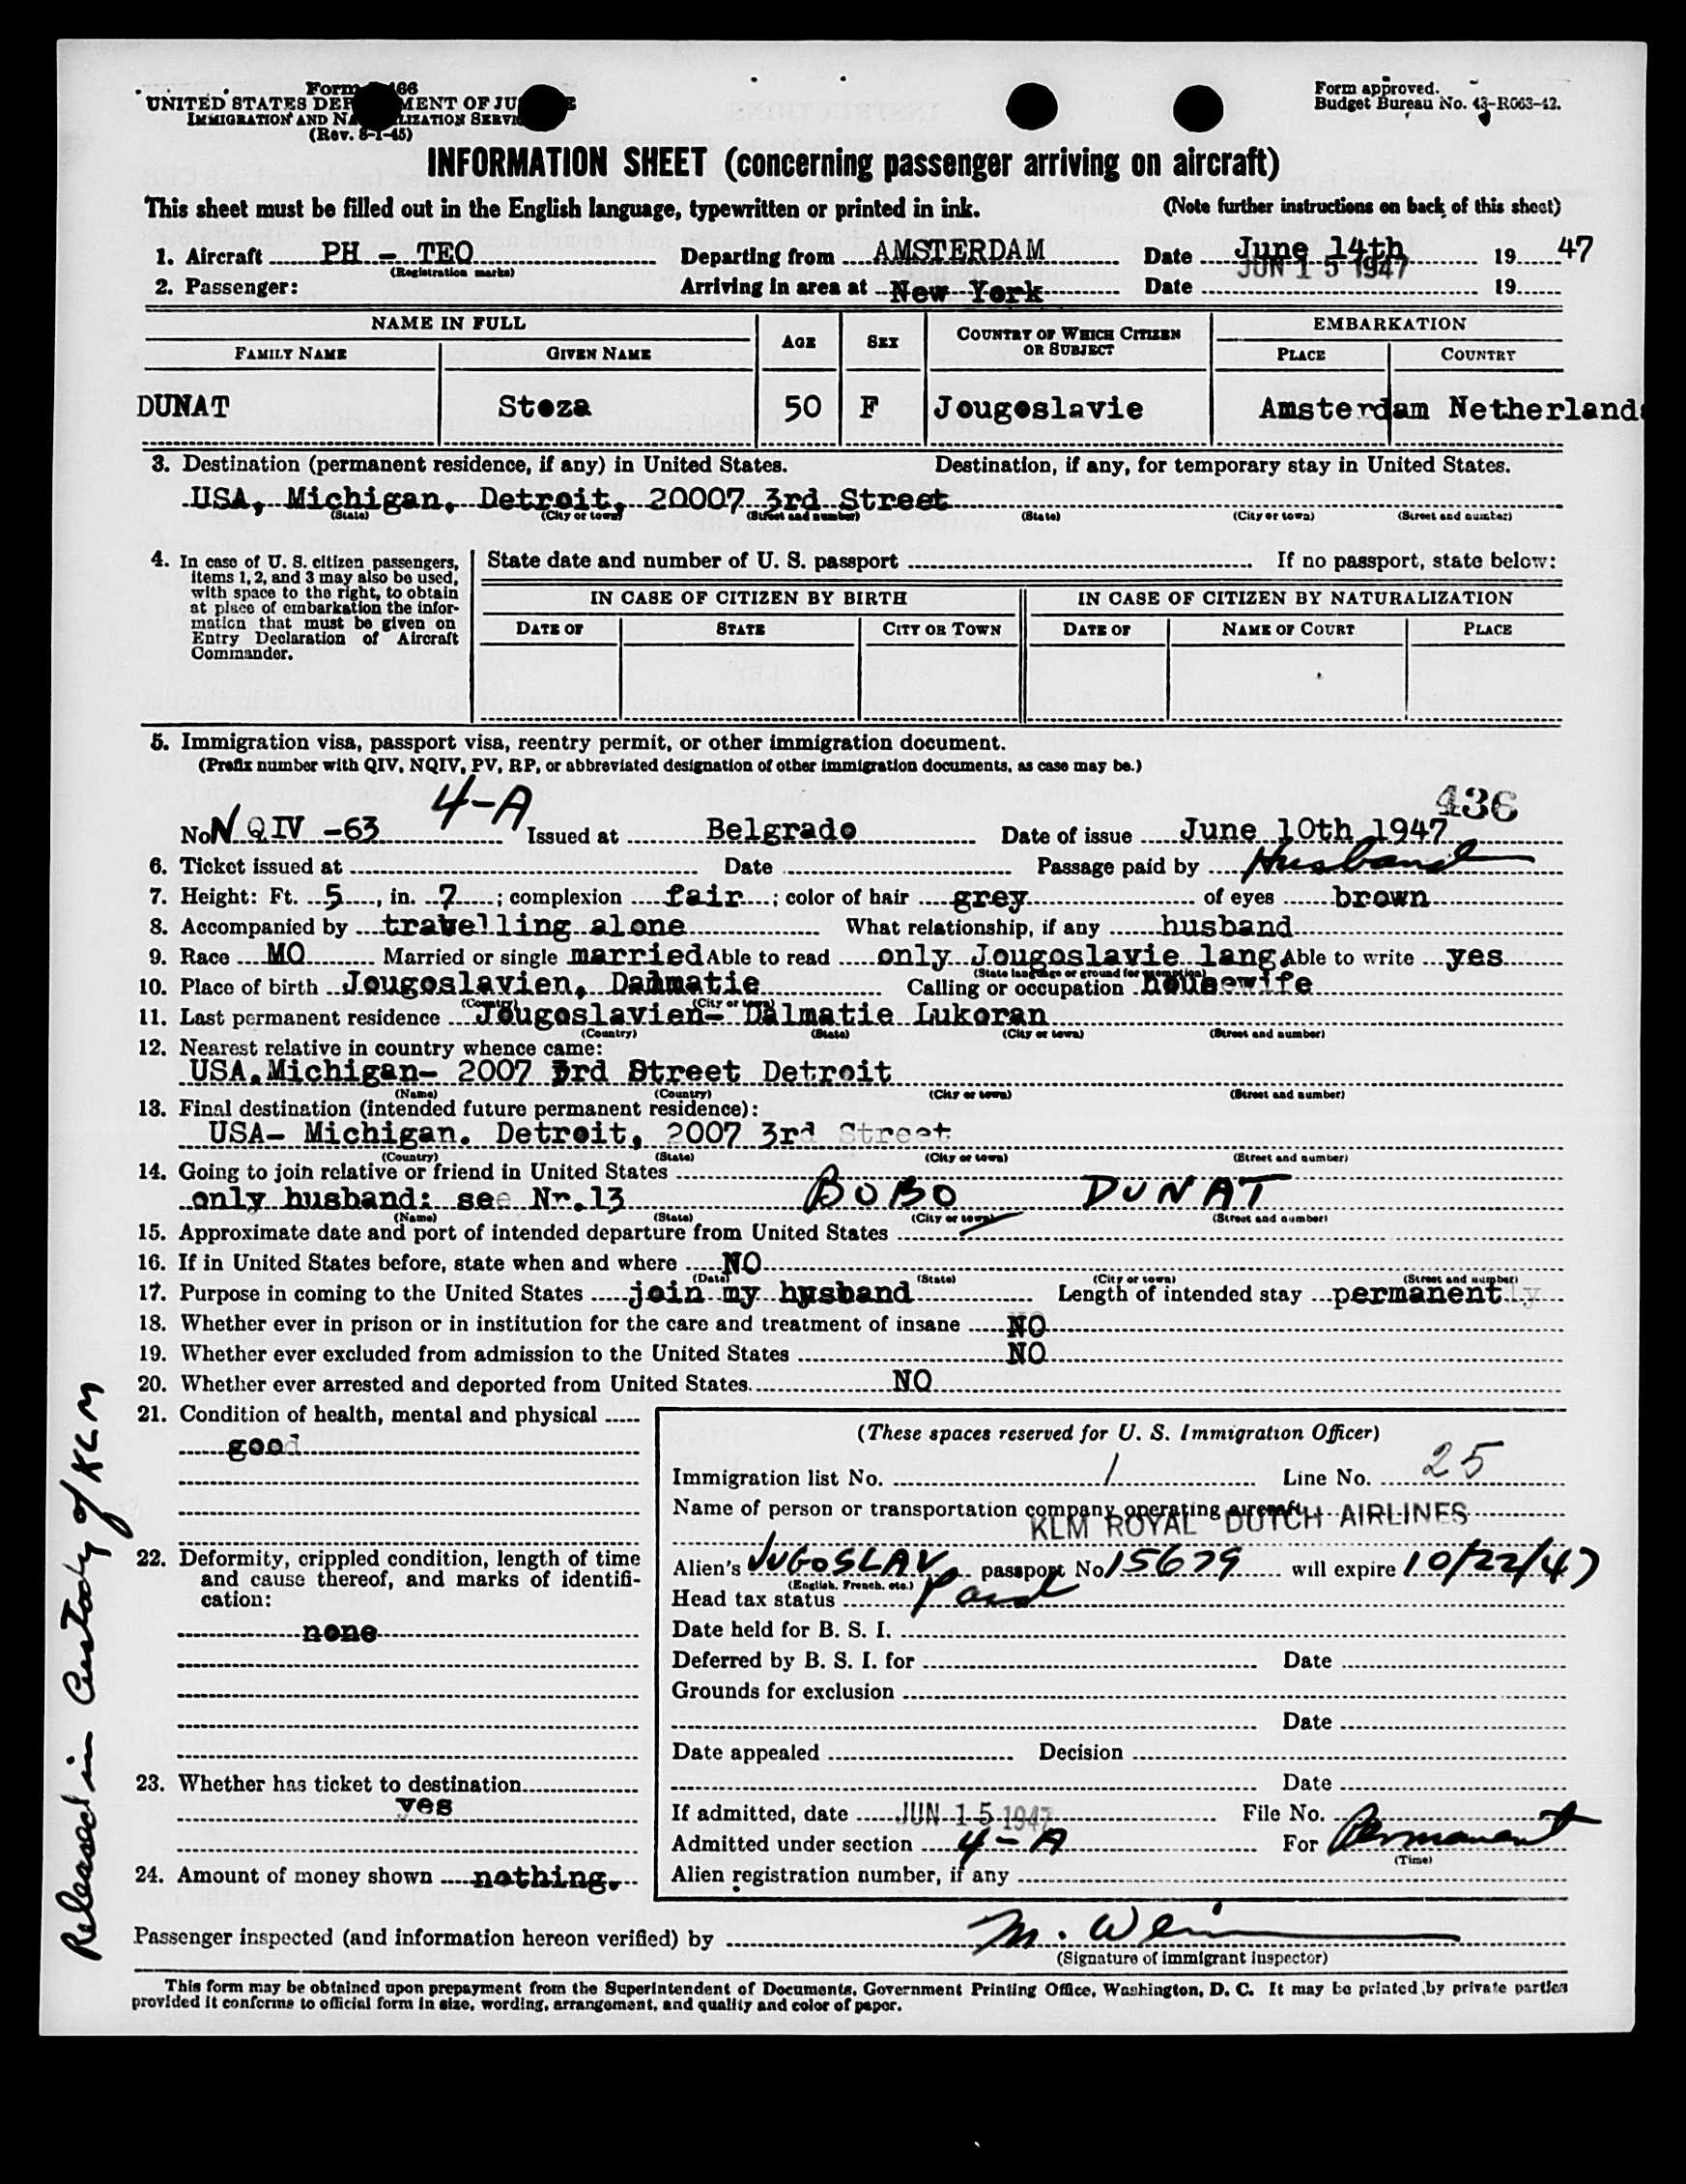 Form 466
UNITED STATES DEPARTMENT OF JUSTICE
IMMIGRATION AND NATURALIZATION SERVICE
(Rev. 8-1-45)
Form approved.
Budget Bureau No. 43-R063-42.
INFORMATION SHEET (concerning passenger arriving on aircraft)
This sheet must be filled out in the English language, typewritten or printed in ink. (Note further instructions on back of this sheet)
1. Aircraft PH - TEO Departing from AMSTERDAM Date June 14th 1947
(Registration marks) JUN 15 1947
2. Passenger: Arriving in area at New York Date 19
NAME IN FULL AGE SEX COUNTRY OF WHICH CITIZEN OR SUBJECT EMBARKATION
FAMILY NAME GIVEN NAME PLACE COUNTRY
DUNAT Stoza 50 F Jougoslavie Amsterdam Netherlands
3. Destination (permanent residence, if any) in United States. Destination, if any, for temporary stay in United States.
USA, Michigan, Detroit, 20007 3rd Street
(State) (City or town) (Street and number) (State) (City or town) (Street and number)
4. In case of U. S. citizen passengers, items 1, 2, and 3 may also be used, with space to the right, to obtain at place of embarkation the information that must be given on Entry Declaration of Aircraft Commander.
State date and number of U. S. passport If no passport, state below:
IN CASE OF CITIZEN BY BIRTH IN CASE OF CITIZEN BY NATURALIZATION
DATE OF STATE CITY OR TOWN DATE OF NAME OF COURT PLACE
5. Immigration visa, passport visa, reentry permit, or other immigration document.
(Prefix number with QIV, NQIV, PV, RP, or abbreviated designation of other immigration documents, as case may be.)
4-A 436
No NQIV -63 Issued at Belgrado Date of issue June 10th 1947
6. Ticket issued at Date Passage paid by Husband
7. Height: Ft. 5, in. 7; complexion fair; color of hair grey of eyes brown
8. Accompanied by travelling alone What relationship, if any husband
9. Race MO Married or single married Able to read only Jougoslavie lang Able to write yes
(State language or ground for exemption)
10. Place of birth Jougoslavien, Dalmatie Calling or occupation housewife
(Country) (City or town)
11. Last permanent residence Jougoslavien- Dalmatie Lukoran
(Country) (State) (City or town) (Street and number)
12. Nearest relative in country whence came:
USA.Michigan- 2007 3rd Street Detroit
(Name) (Country) (City or town) (Street and number)
13. Final destination (intended future permanent residence):
USA- Michigan. Detroit, 2007 3rd Street
(Country) (State) (City or town) (Street and number)
14. Going to join relative or friend in United States
only husband: see Nr.13 BOBO DUNAT
(Name) (State) (City or town) (Street and number)
15. Approximate date and port of intended departure from United States
16. If in United States before, state when and where NO
(Date) (State) (City or town) (Street and number)
17. Purpose in coming to the United States join my hysband Length of intended stay permanently
18. Whether ever in prison or in institution for the care and treatment of insane NO
19. Whether ever excluded from admission to the United States NO
20. Whether ever arrested and deported from United States. NO
21. Condition of health, mental and physical
good
22. Deformity, crippled condition, length of time and cause thereof, and marks of identification:
none
23. Whether has ticket to destination
yes
24. Amount of money shown nothing.
(These spaces reserved for U. S. Immigration Officer)
Immigration list No. 1 Line No. 25
Name of person or transportation company operating aircraft
KLM ROYAL DUTCH AIRLINES
Alien's JUGOSLAV passport No 15679 will expire 10/22/47
(English, French, etc.)
Head tax status Paid
Date held for B. S. I.
Deferred by B. S. I. for Date
Grounds for exclusion
Date
Date appealed Decision
Date
If admitted, date JUN 15 1947 File No.
Admitted under section 4-A For Permanent
(Time)
Alien registration number, if any
Released in Custody of KLM
Passenger inspected (and information hereon verified) by M. Wein
(Signature of immigrant inspector)
This form may be obtained upon prepayment from the Superintendent of Documents, Government Printing Office, Washington, D. C. It may be printed by private parties
provided it conforms to official form in size, wording, arrangement, and quality and color of paper.